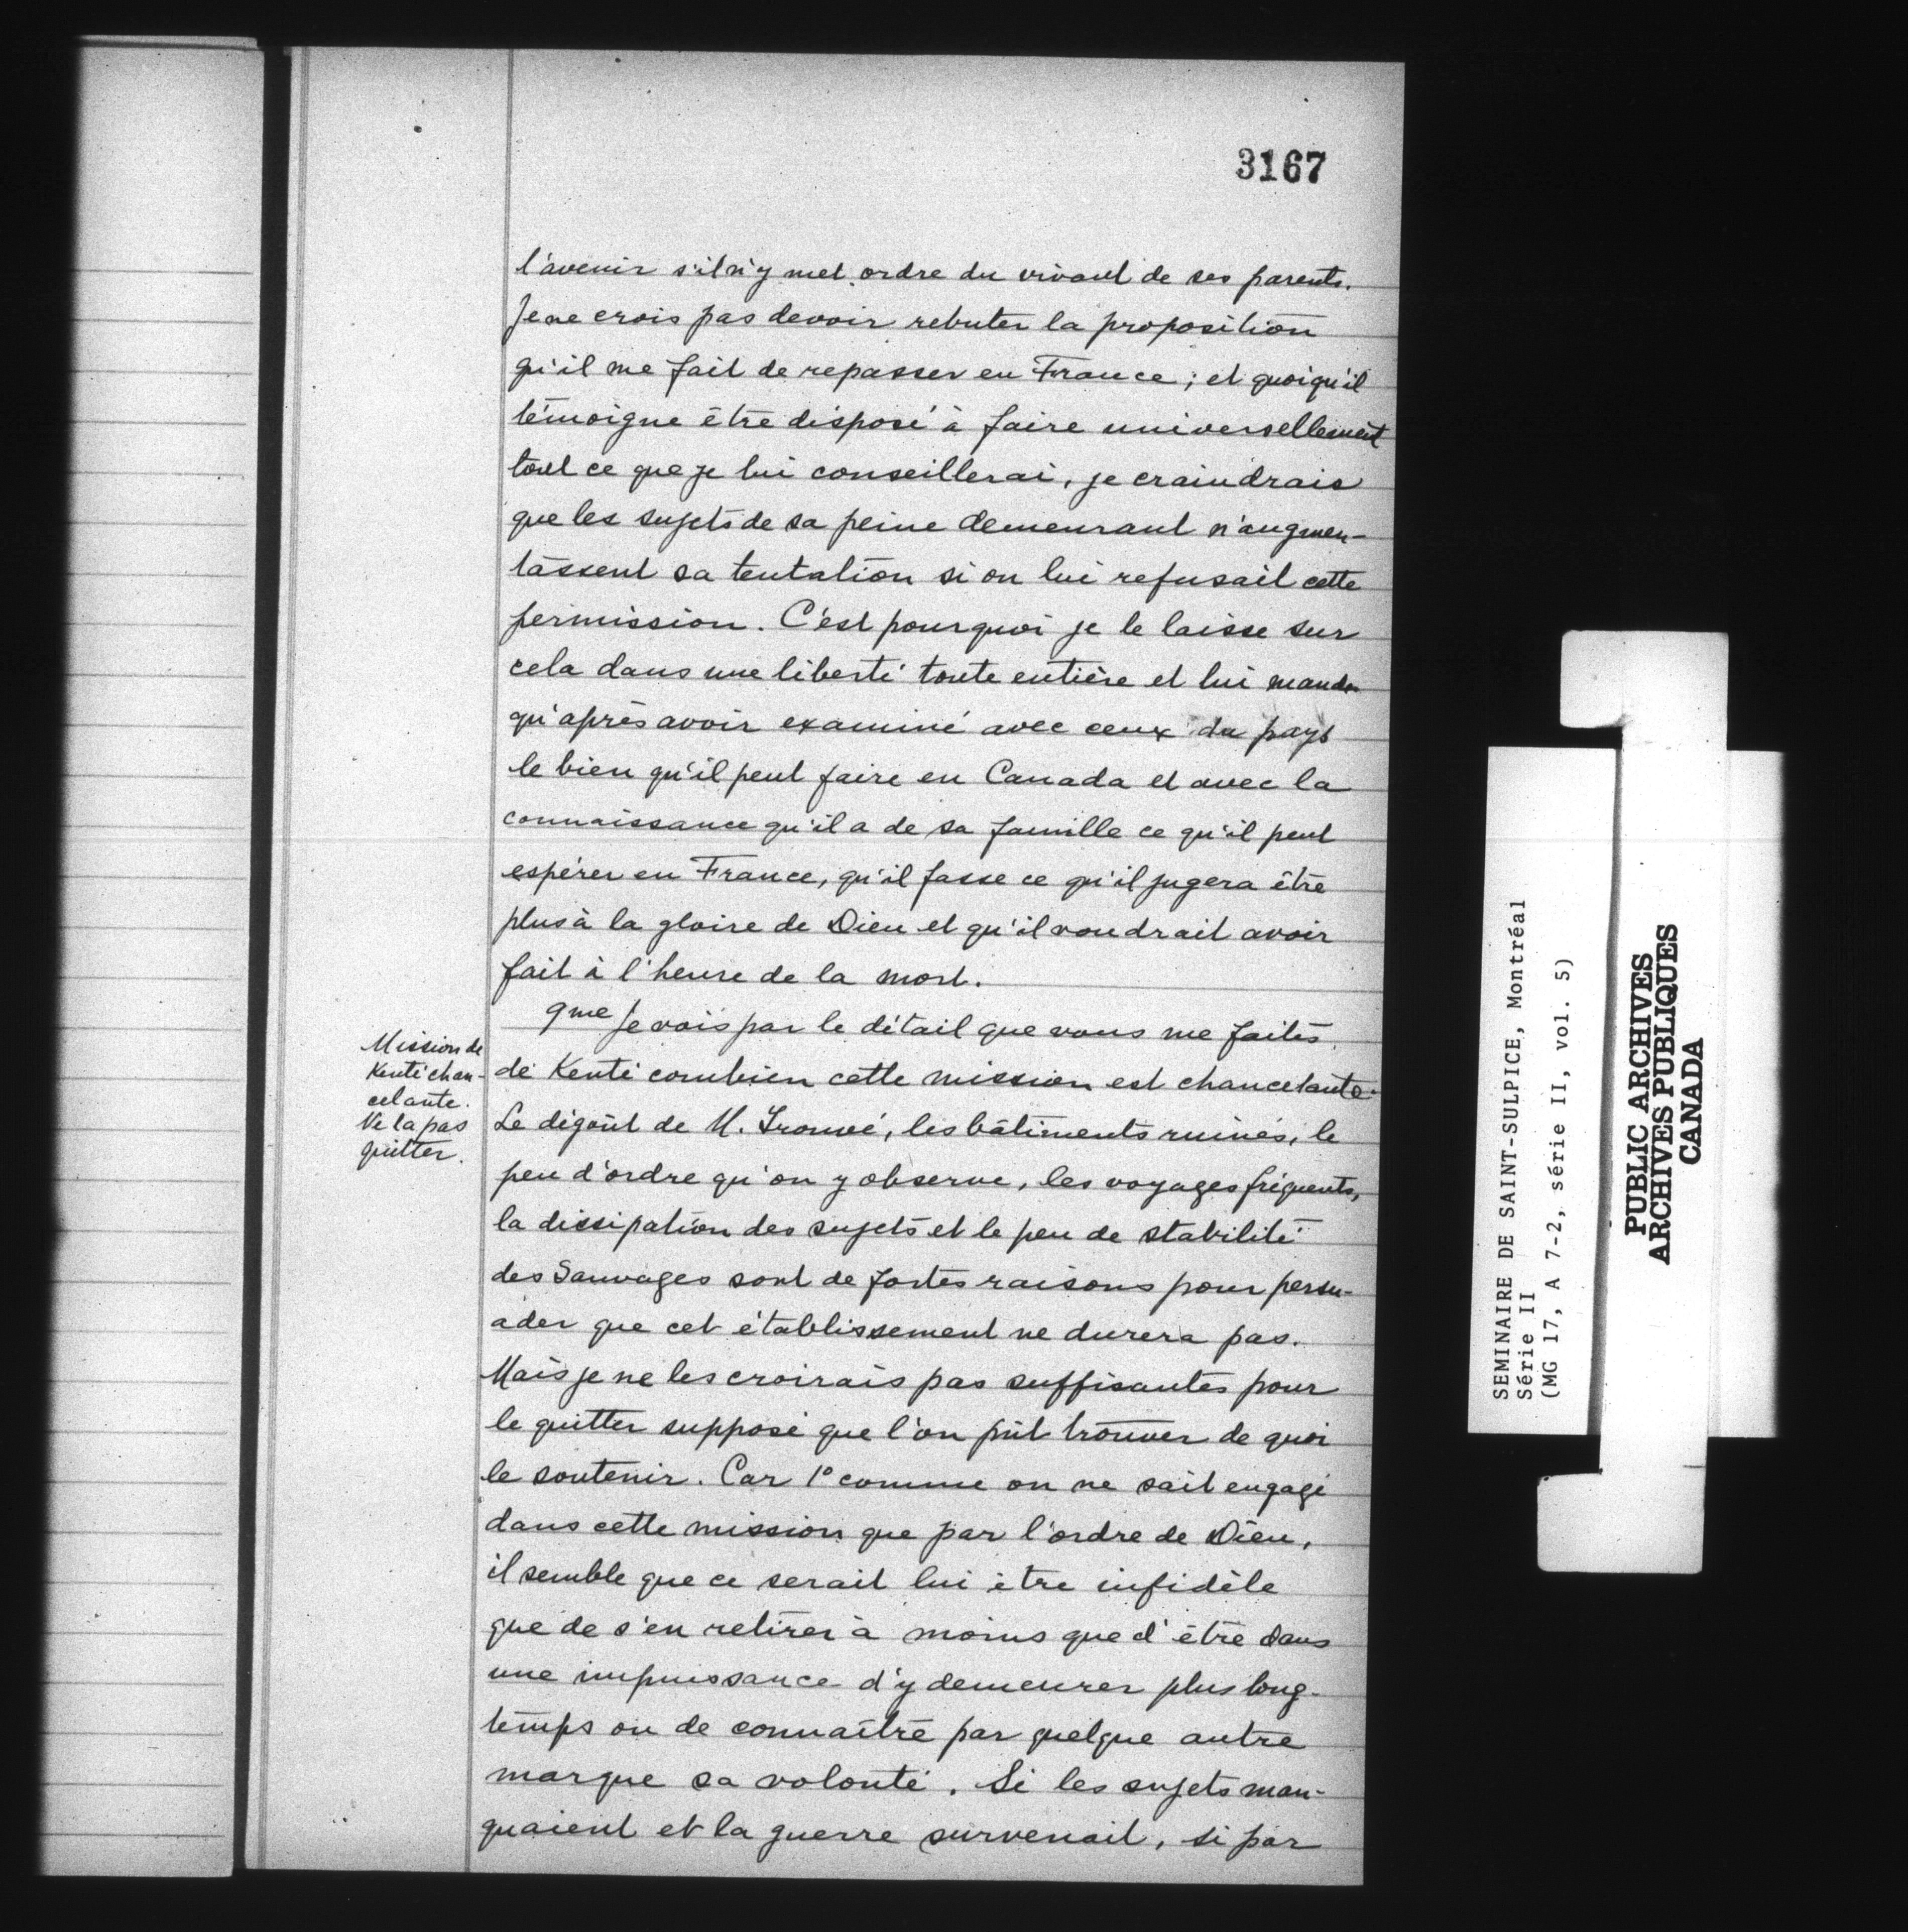 3167
l'avenir s'il n'y met ordre du vivant de ses parents.
Je ne crois pas devoir rebuter la proposition
qu'il me fait de repasser en France ; et quoiqu'il
témoigne être disposé à faire universellement
tout ce que je lui conseillerai, je craindrais
que les sujets de sa peine demeurant n'augmen-
tassent sa tentation si on lui refusait cette
permission. C'est pourquoi je le laisse sur
cela dans une liberté toute entière et lui mande
qu'après avoir examiné avec ceux du pays
le bien qu'il peut faire en Canada et avec la
connaissance qu'il a de sa famille ce qu'il peut
espérer en France, qu'il fasse ce qu'il jugera être
plus à la gloire de Dieu et qu'il voudrait avoir
fait à l'heure de la mort.
9me Je vois par le détail que vous me faites
de Kenté combien cette mission est chancelante.
Le dégoût de M. Trouvé, les bâtiments ruinés, le
peu d'ordre qu'on y observe, les voyages fréquents,
la dissipation des sujets et le peu de stabilité
des Sauvages sont de fortes raisons pour persu-
ader que cet établissement ne durera pas.
Mais je ne les croirais pas suffisantes pour
le quitter supposé que l'on pût trouver de quoi
le soutenir. Car 1° comme on ne s'ait engagé
dans cette mission que par l'ordre de Dieu,
il semble que ce serait lui être infidèle
que de s'en retirer à moins que d'être dans
une impuissance d'y demeurer plus long-
temps ou de connaître par quelque autre
marque sa volonté. Si les sujets man-
quaient et la guerre survenait, si par
Mission de
Kenté chan-
celante.
Ne la pas
quitter.
SEMINAIRE DE SAINT-SULPICE, Montréal
Série II
(MG 17, A 7-2, série II, vol. 5)
PUBLIC ARCHIVES
ARCHIVES PUBLIQUES
CANADA